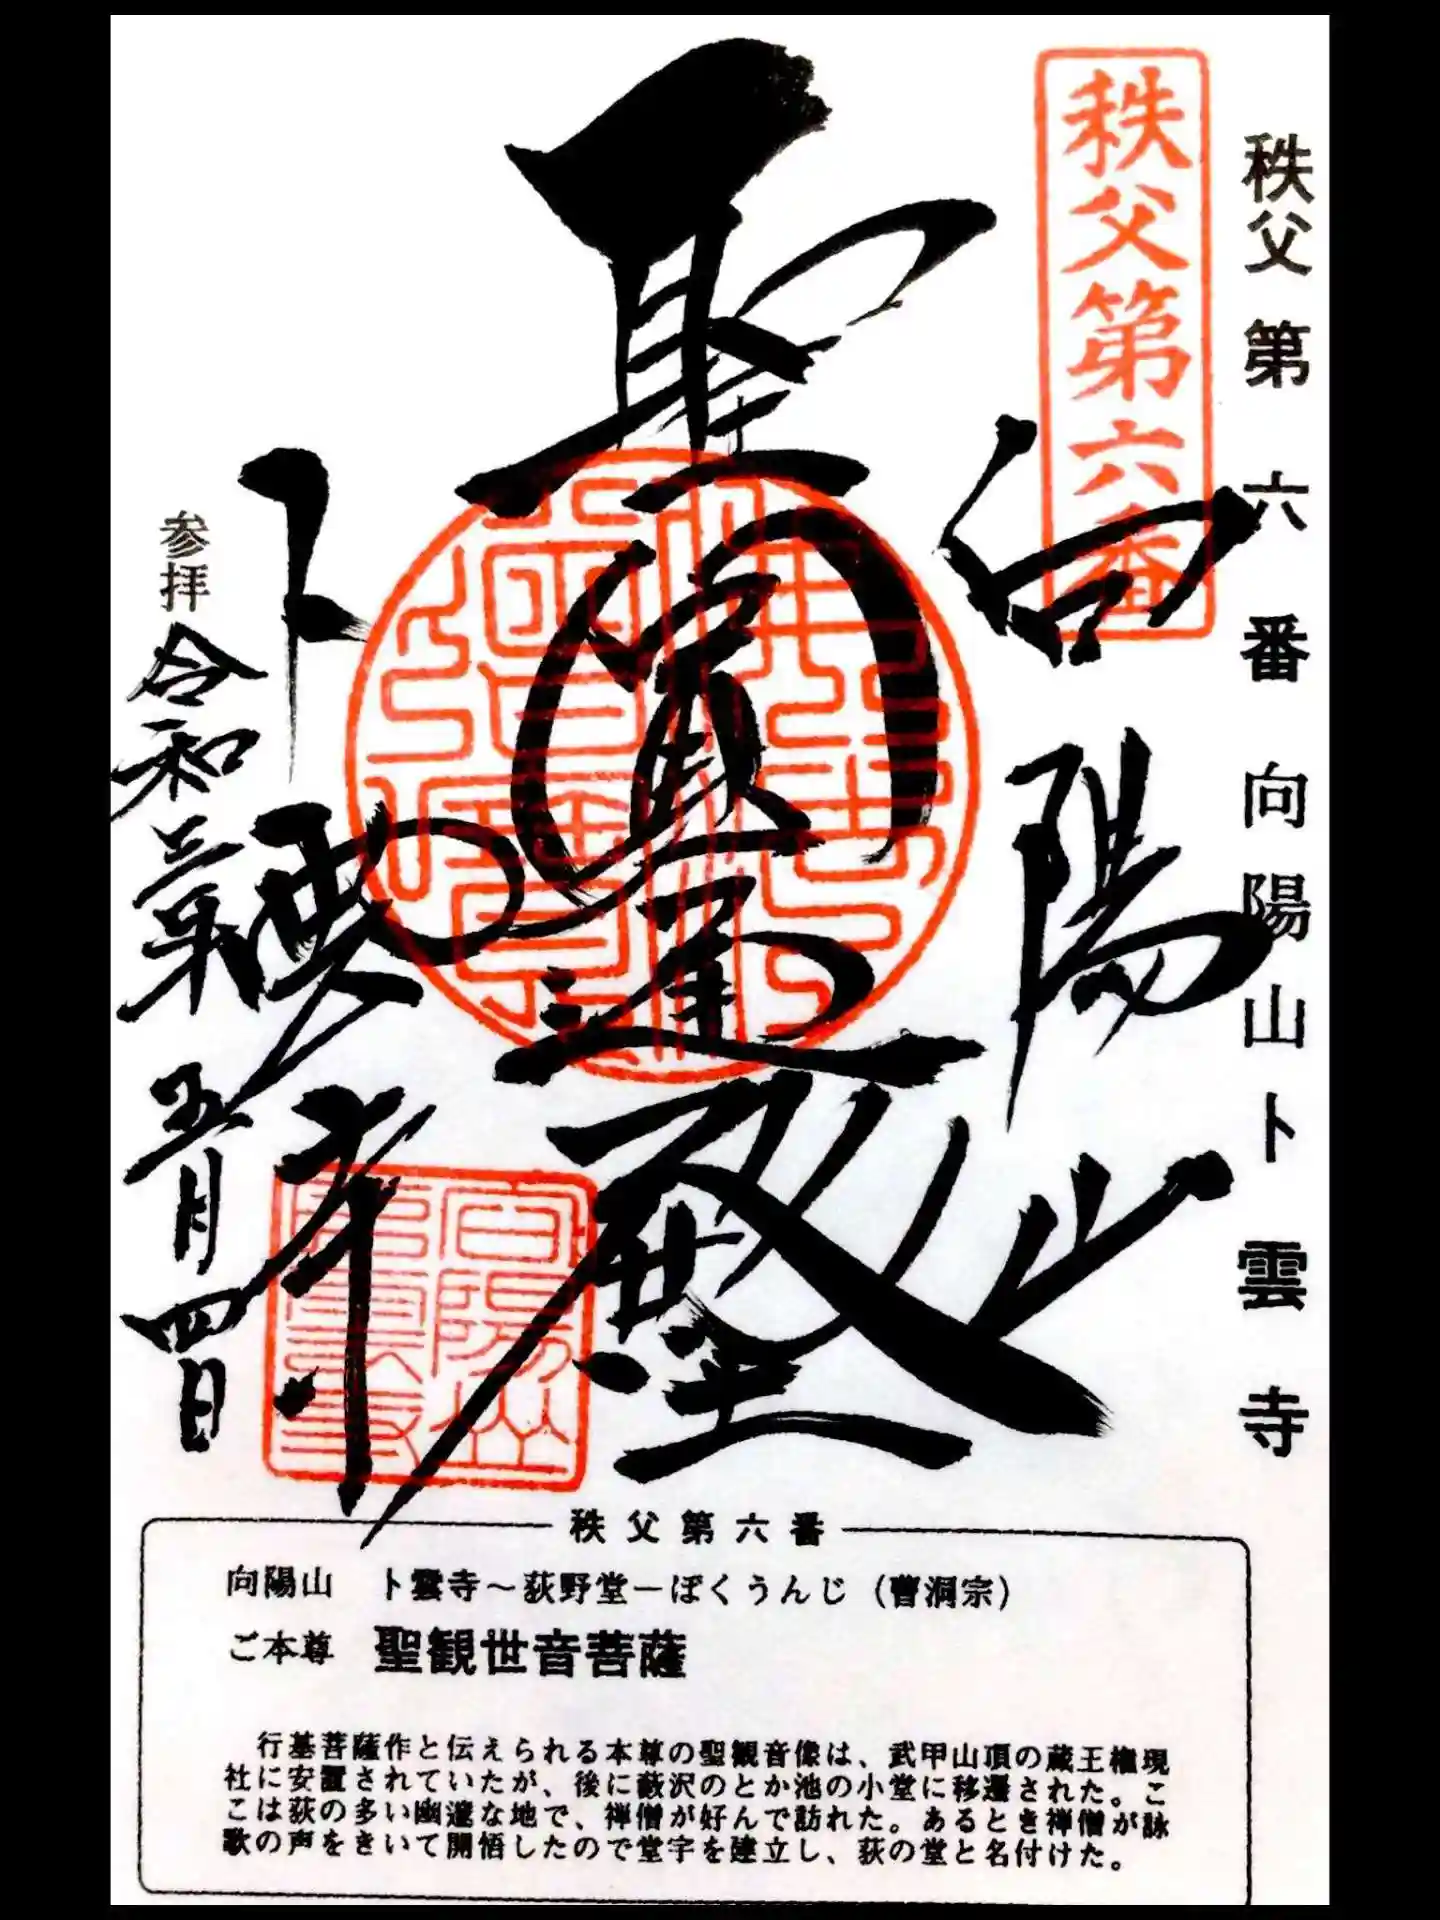 秩父第六番 向陽山卜雲寺
秩父第六番
向陽山
聖
圓通殿
卜雲寺
参拝 令和三年五月四日
秩父第六番
向陽山 卜雲寺～荻野堂ーぼくうんじ（曹洞宗）
ご本尊 聖観世音菩薩
行基菩薩作と伝えられる本尊の聖観音像は、武甲山頂の蔵王権現
社に安置されていたが、後に藪沢のとか池の小堂に移遷された。こ
こは荻の多い幽邃な地で、禅僧が好んで訪れた。あるとき禅僧が詠
歌の声をきいて開悟したので堂宇を建立し、荻の堂と名付けた。